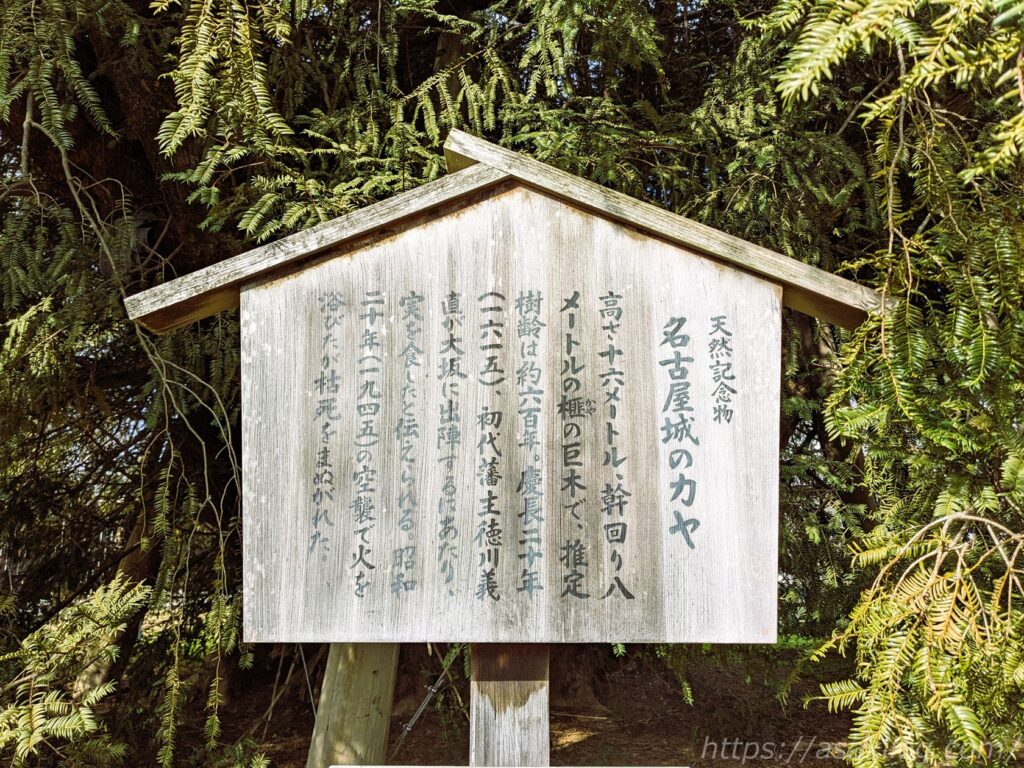 天然記念物
名古屋城のカヤ
高さ十六メートル、幹回り八
メートルの榧の巨木で、推定
かや
樹齢は約六百年。慶長二十年
(一六一五)、初代藩主徳川義
直が大坂に出陣するにあたり、
実を食したと伝えられる。昭和
二十年(一九四五)の空襲で火を
浴びたが枯死をまぬがれた。